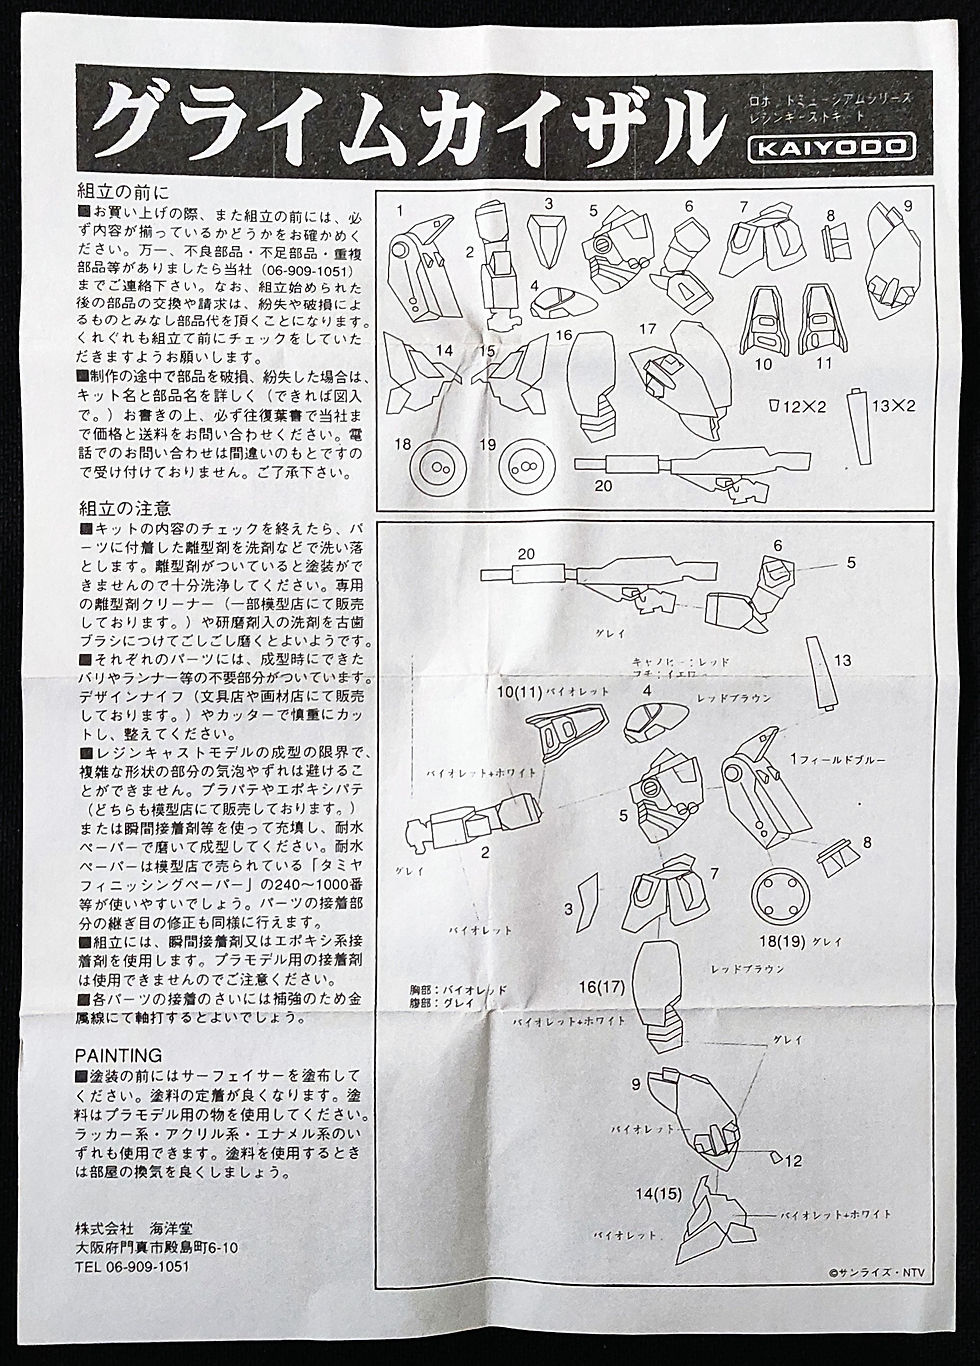 グライムカイザル
ロボットミュージアムシリーズ
レジンキャストキット
KAIYODO
組立の前に
■お買い上げの際、また組立の前には、必
ず内容が揃っているかどうかをお確かめく
ださい。万一、不良部品・不足部品・重複
部品等がありましたら当社（06-909-1051）
までご連絡下さい。なお、組立始められた
後の部品の交換や請求は、紛失や破損によ
るものとみなし部品代を頂くことになります。
くれぐれも組立て前にチェックをしていた
だきますようお願いします。
■制作の途中で部品を破損、紛失した場合は、
キット名と部品名を詳しく（できれば図入
で。）お書きの上、必ず往復葉書で当社ま
で価格と送料をお問い合わせください。電
話でのお問い合わせは間違いのもとですの
で受け付けておりません。ご了承下さい。
組立の注意
■キットの内容のチェックを終えたら、パ
ーツに付着した離型剤を洗剤などで洗い落
とします。離型剤がついていると塗装がで
きませんので十分洗浄してください。専用
の離型剤クリーナー（一部模型店にて販売
しております。）や研磨剤入の洗剤を古歯
ブラシにつけてごしごし磨くとよいようです。
■それぞれのパーツには、成型時にできた
バリやランナー等の不要部分がついています。
デザインナイフ（文具店や画材店にて販売
しております。）やカッターで慎重にカッ
トし、整えてください。
■レジンキャストモデルの成型の限界で、
複雑な形状の部分の気泡やずれは避けるこ
とができません。プラパテやエポキシパテ
（どちらも模型店にて販売しております。）
または瞬間接着剤等を使って充填し、耐水
ペーパーで磨いて成型してください。耐水
ペーパーは模型店で売られている「タミヤ
フィニッシングペーパー」の240～1000番
等が使いやすいでしょう。パーツの接着部
分の継ぎ目の修正も同様に行えます。
■組立には、瞬間接着剤又はエポキシ系接
着剤を使用します。プラモデル用の接着剤
は使用できませんのでご注意ください。
■各パーツの接着のさいには補強のため金
属線にて軸打するとよいでしょう。
PAINTING
■塗装の前にはサーフェイサーを塗布して
ください。塗料の定着が良くなります。塗
料はプラモデル用の物を使用してください。
ラッカー系・アクリル系・エナメル系のい
ずれも使用できます。塗料を使用するとき
は部屋の換気を良くしましょう。
株式会社　海洋堂
大阪府門真市殿島町6-10
TEL 06-909-1051
1
2
3
4
5
6
7
8
9
10
11
12×2
13×2
14
15
16
17
18
19
20
20
6
5
グレイ
キャノピー：レッド
フチ：イエロー
13
10(11) バイオレット
4
レッドブラウン
1 フィールドブルー
バイオレット+ホワイト
5
8
2
グレイ
7
3
バイオレット
18(19) グレイ
レッドブラウン
胸部：バイオレッド
腹部：グレイ
16(17)
バイオレット+ホワイト
グレイ
9
バイオレット
12
14(15)
バイオレット+ホワイト
バイオレット
©サンライズ・NTV